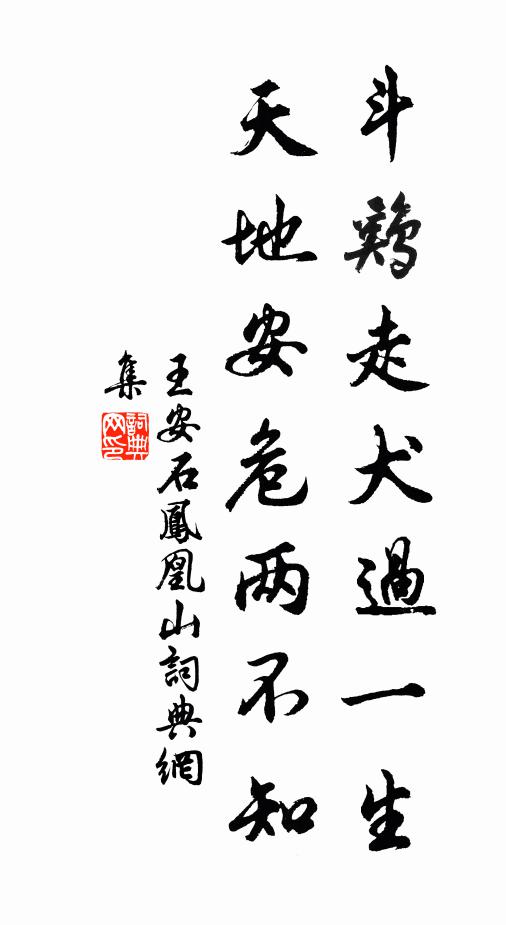 斗鷄走犬過一生
天地安危两不知
王安石鳳凰山詞典網
集
詞典网印